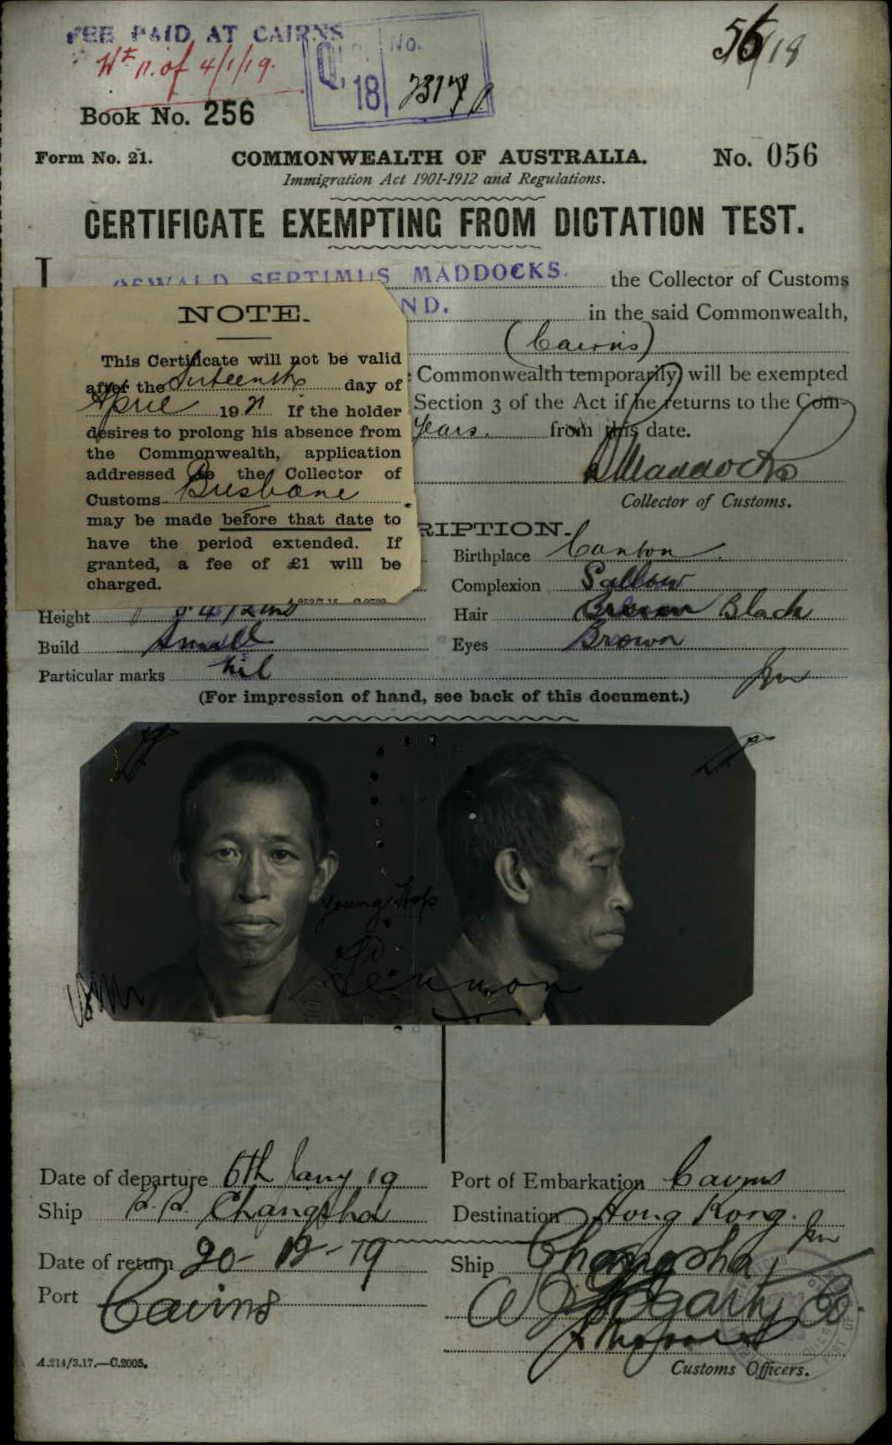 FEE PAID AT CAIRNS
of 4/1/19.
No.
18
56/18
Book No. 256
Form No. 21.
COMMONWEALTH OF AUSTRALIA.
No. 056
Immigration Act 1901-1912 and Regulations.
CERTIFICATE EXEMPTING FROM DICTATION TEST.
I, OSWALD SEPTIMUS MADDOCKS. the Collector of Customs
ND. in the said Commonwealth,
(Cairns)
Commonwealth temporarily will be exempted
Section 3 of the Act if he returns to the Com-
Years. from this date.
Maddocks
Collector of Customs.
NOTE.
This Certificate will not be valid
after the day of
April 1921 If the holder
desires to prolong his absence from
the Commonwealth, application
addressed to the Collector of
Customs Brisbane
may be made before that date to
have the period extended. If
granted, a fee of £1 will be
charged.
RIPTION.
Birthplace Canton.
Complexion Sallow
Height
Hair Brown Black
Build Small
Eyes Brown
Particular marks Nil
(For impression of hand, see back of this document.)
Young
Date of departure 6th Jany 19
Port of Embarkation Cairns
Ship S.S. Changsha
Destination Hong Kong.
Date of return 20-12-19
Ship Changsha
Port Cairns
A.214/3.17.—C.2005.
Customs Officers.